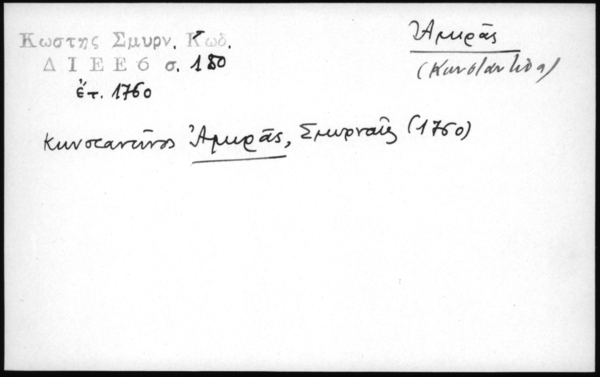 Κωστης Σμυρν. Κωδ.
Δ Ι Ε Ε 6 σ. 180
ἔτ. 1760
Ἀμιρᾶς
(Κωνσταντῖνος)
Κωνσταντῖνος Ἀμιρᾶς, Σμυρναῖος (1760)